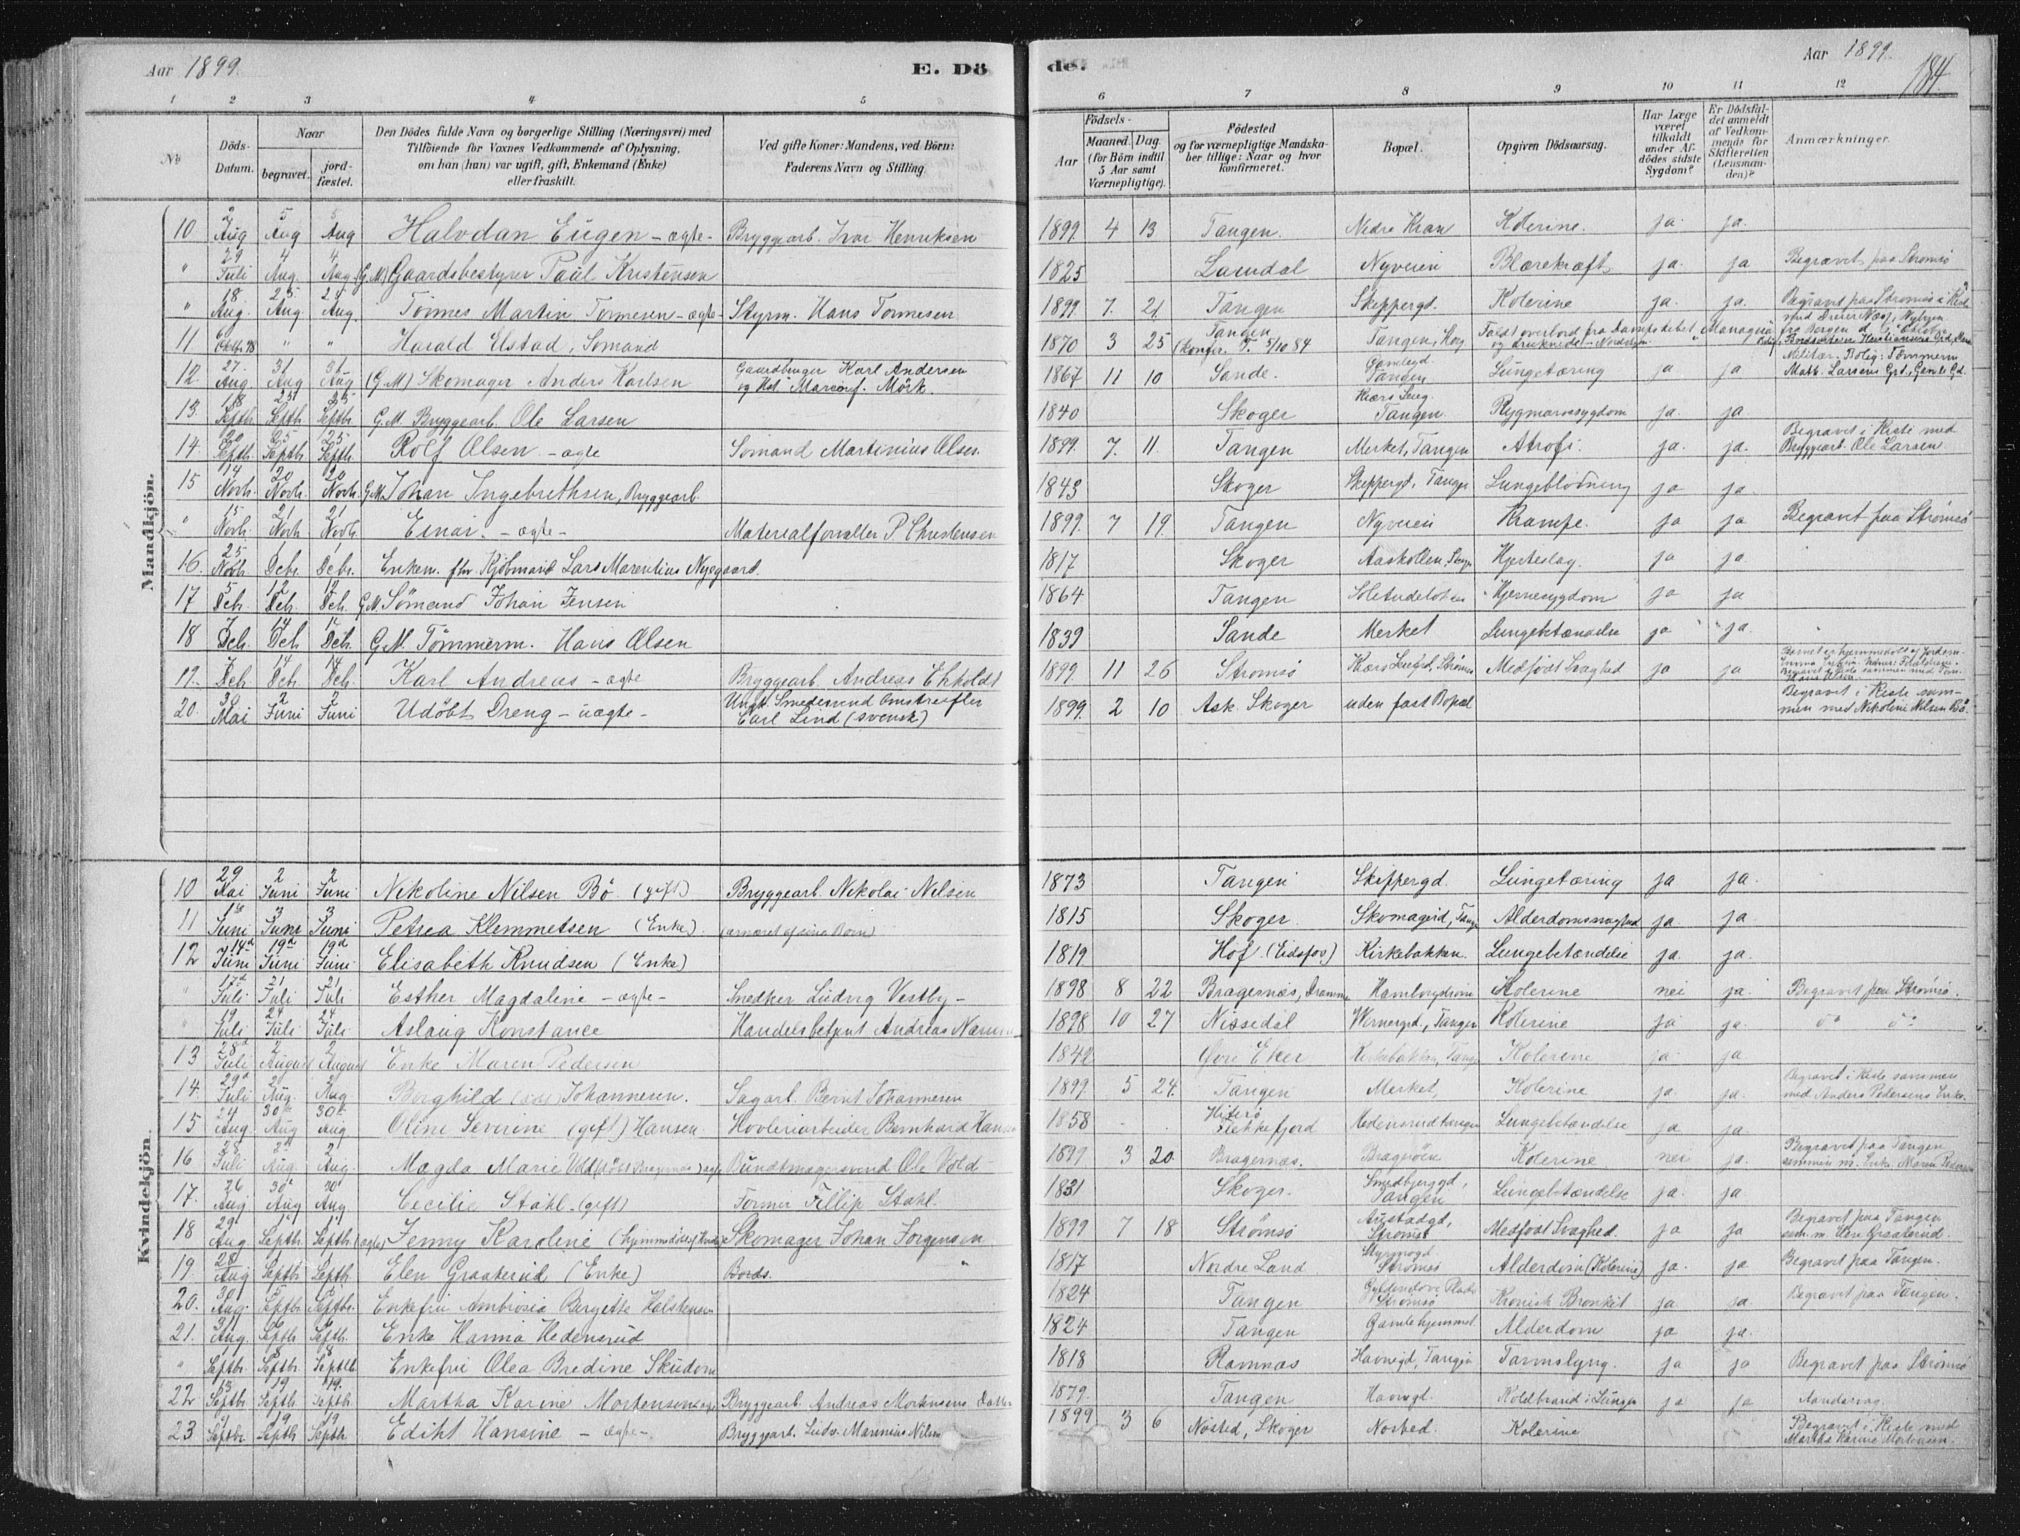 Aar 1899. E. Dö de. Aar 1899. 184.
1 2 3 4 5 6 7 8 9 10 11 12
No Döds-Datum. Naar begravet. jordfæstet. Den Dödes fulde Navn og borgerlige Stilling (Næringsvei) med Tilföiende for Voxnes Vedkommende af Oplysning, om han (hun) var ugift, gift, Enkemand (Enke) eller fraskilt. Ved gifte Koner: Mandens, ved Börn: Faderens Navn og Stilling. Födsels- Aar Maaned. Dag. (for Börn indtil 5 Aar samt Værnepligtige). Födested og for værnepligtige Mandskaber tillige: Naar og hvor konfirmeret. Bopæl. Opgiven Dödsaarsag. Har Læge været tilkaldt under Afdödes sidste Sygdom? Er Dödsfaldet anmeldt af Vedkommende for Skifteretten (Lensmanden)? Anmærkninger.
Mandkjön.
10 2 Aug 5 Aug 5 Aug Halvdan Eugen – ægte – Bryggearb. Ivar Henriksen 1899 4 13 Tangen. Nedre Kran Kolerine. ja. ja.
" 29 Juli 4 Aug. 4 Aug. (G.M.) Gaardsbestyrer Paul Kristensen 1825 Nyveien Blærekræft ja. ja Begravet paa Strømsø
" 18 Aug. 25 Aug 25 Aug. Tørmes Martin Tormesen – ægte – Styrm. Hans Tormesen 1899 7. 21 Tangen Skippergd. Kolerine ja. ja.
11 " " Harald Ustad, Sømand 1870 3 25 Tangen (konfir. T. 5/10 84 Tangen
12 27. Aug. 31 Aug 31 Aug (G.M) Skomager Anders Karlsen Gaardbruger Karl Andersen 1867 11 10 Sande. Tangen Lungetæring ja ja
13. 18 Septb. 25 Septb. 25 Septb. G.M. Bryggearb. Ole Larsen 1840 Skoger Tangen. Rygmarvssygdom ja. ja.
14. 20 Septb. 25 Septb. 25 Septb. Rolf Olsen – ægte Sømand Martinius Olsen 1899 7. 11. Tangen Merket, Tangen Atrofi. ja. ja. Begravet i Kiste med Bryggearb. Ole Larsen
15 14 Novb. 20 Novb. 20 Novb. G.M. Johan Ingebrethsen, Bryggearb. 1843 Skoger Skippergd, Tangen Lungeblødning ja ja
" 15 Novb. 21 Novb 21 Novb. Einar. – ægte – Materialforvalter P. Christensen 1899. 7 19. Tangen Nyveien Krampe. ja ja Begravet paa Strømsø
16 25 Novb. 1 Decbr. 1 Decbr. Enkem. fhv Kjøbmand Lars Marentius Nyegaard. 1817 Skoger Aaskollen Hjerteslag. ja ja
17 5 Decb. 12 Decb. 12 Decb. G.M. Sømand Johan Jensen 1864 Tangen Hjernesygdom ja ja
18 7 Decb. 14 Decb 14 Decb. G.M. Tømmerm. Hans Olsen 1839 Sande Merket Lungebetændelse ja ja.
19. 7 Decb. 14 Decb 14 Decb. Karl Andreas – ægte Bryggearb. Andreas Ekholdt 1899 11 26 Strømsø Medfødt Svaghed ja ja
20. 30 Mai 2 Juni 2 Juni Udøbt Dreng – uægte – Ungk. Smedesvend Omstreifer Carl Lind (svensk) 1899. 2 10 Ask Skoger uden fast Bopæl Begravet i Kiste sammen med Nikoline Nilsen Bø.
Kvindekjön.
10 29 Mai 2 Juni 2 Juni Nikoline Nilsen Bø (gift) Bryggearb. Nikolai Nilsen 1873 Tangen Skippergd. Lungetæring ja ja.
11 Juni 3 Juni 3 Juni Petrea Klemmetsen (Enke) (ernæret af sine Børn) 1815 Skoger. Alderdomssvaghed ja. ja
12 14d Juni 19d Juni 19d Juni Elisabeth Knudsen (Enke) 1819 Hof (Eidsfos) Kirkebakken. Lungebetændelse ja. ja
" 17d Juli 21 Juli 21 Juli Esther Magdaline – ægte – Snedker Ludvig Vestby – 1898 8 22 Bragernæs, Hamborgstrøm Kolerine nei ja. Begravet paa Strømsø.
" 19 Juli 24 Juli 24 Juli Aslaug Konstance Handelsbetjent Andreas 1898 10 27 Nissedal Wernergd, Tangen Kolerine ja ja. do do
13 28d Juli 2 August 2 August Enke Maren Pedersen 1842 Øvre Eker Kirkebakken, Tangen Kolerine ja. ja.
14. 29d Juli 2 Aug. 2 Aug Borghild Johannesen. Sagarb. Bernt Johannesen 1899. 5 24. Tangen Merket, Kolerine ja. ja. Begravet i Kiste sammen med Anders Pedersens Enke.
15 24 Aug 30te Aug 30te Aug Oline Severine (gift) Hansen Høvleriarbeider Bernhard Hansen 1858 Hiterø Flekkefjord Lungebetændelse ja ja.
16 28 Juli 2 Aug. 2 Aug. Magda Marie Bundtmagersvend Ole Vold – 1899 3 20. Bragernæs. Bragerøen Kolerine nei ja. Begravet paa Tangen sammen m. Enke Maren Pedersen
17. 26 Aug 30 Aug 30 Aug Cecilie Stahl. (gift) Former Fillip Stahl. 1831 Skoger. Smedbjerggd, Tangen Lungebetændelse ja. ja.
18 29 Aug. 1 Septb 1 Septb (ægte) Jenny Karoline Skomager Johan Jørgensen 1899 7 18 Strømsø Austadgd, Strømsø Medfødt Svaghed. ja ja Begravet paa Tangen sam. m. Elen Graaterud.
19. 28 Aug 1 Septb 1 Septb. Elen Graaterud (Enke) Bords. " 1817 Nordre Land Strømsø Alderdom (Kolerine) ja. ja Begravet paa Tangen.
20. 30 Aug. 5 Septbr. 5 Septbr. Enkefru Ambrosia Birgitte Halstensen 1824 Tangen Strømsø Kronisk Bronkit ja ja Begravet paa Tangen.
21. 31 Aug. Septb Septb. Enke Hanna Hedensrud 1824 Tangen Gamlehjemmet. Alderdom ja ja.
" Septbr. 8 Septbr. 8 Septb. Enkefru Olea Bredine 1818 Ramnæs Havnegd, Tangen Tarmslyng. ja ja Begravet paa Strømsø
22 13 Septb. 19 Septb. 19. Septb. Martha Karine Mortensen Bryggearb Andreas Mortensens Datter 1879. Tangen Havnegd. Koldbrand i Lungen ja ja
23. Septbr 19 Septb 19 Septb. Edith Hansine – ægte – Bryggearb. Ludv. Marinius Nilsen 1899 3 6 Nøsted, Skoger Nøsted. Kolerine Begravet i Kiste med Martha Karine Mortensen.